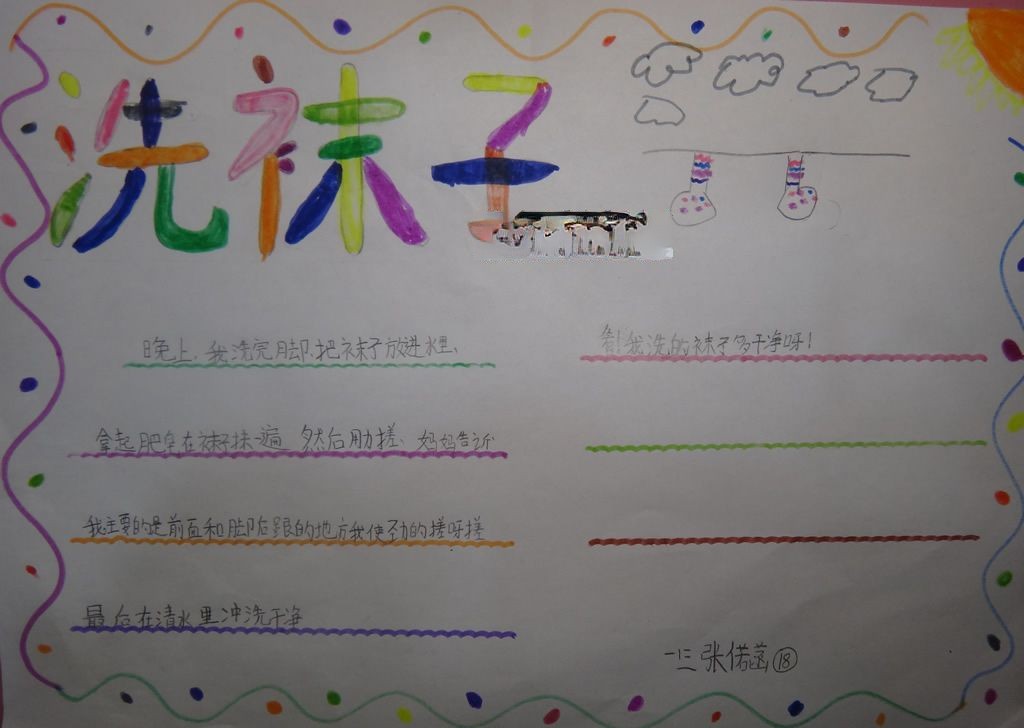 洗袜子
晚上,我洗完脚,把袜子放进水里、
拿起肥皂在袜子抹一遍 然后用力搓、妈妈告诉
我主要的是前面和脚后跟的地方我使劲的搓呀搓
最后在清水里冲洗干净
看!我洗的袜子多干净呀!
一三 张偌菡 ⑱